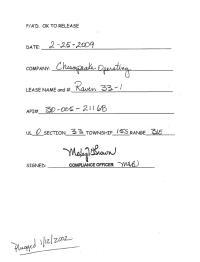 P/A'D. OK TO RELEASE
DATE: 2-25-2009
COMPANY: Chesapeake Operating
LEASE NAME and #: Raven 33-1
API# 30-005-21168
UL O SECTION 33 TOWNSHIP 15S RANGE 31E
SIGNED: COMPLIANCE OFFICER
Plugged 1/12/2002